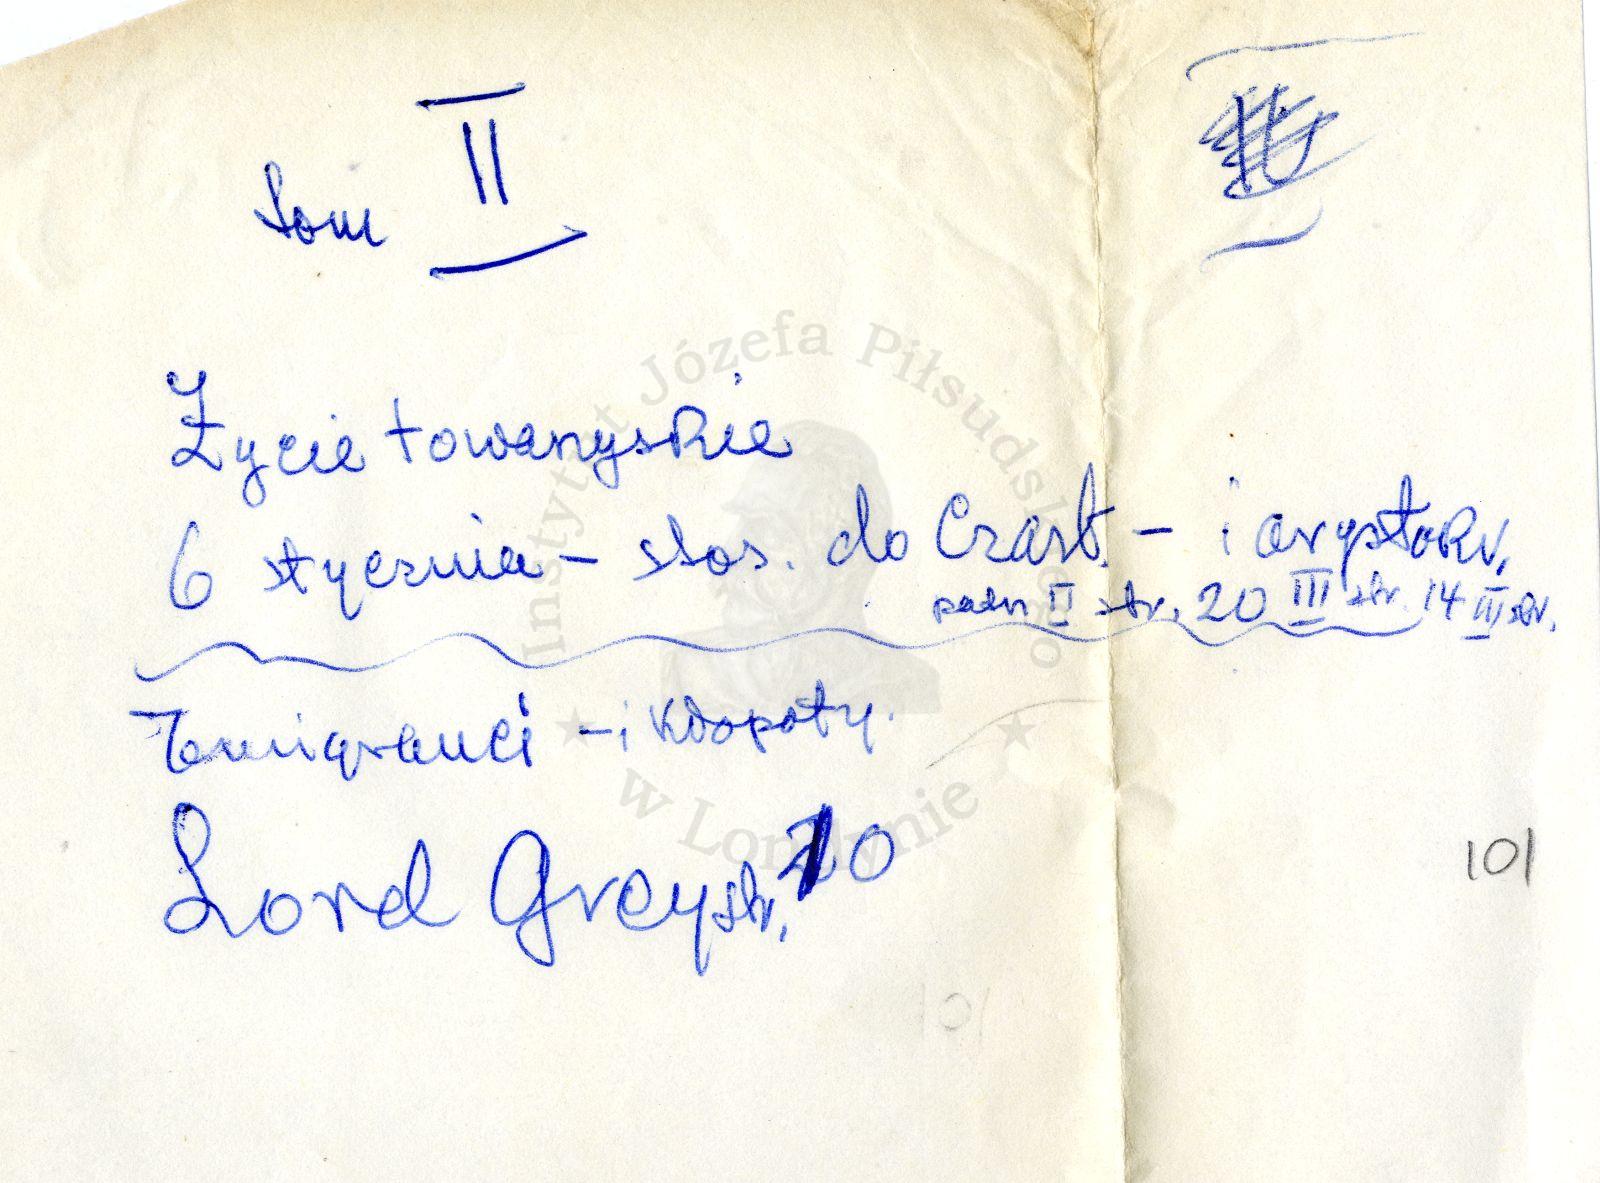 tom II
Życie towarzyskie
6 stycznia – stos. do Czart. – i arystokr.
patrz II str. 20 III str. 14 III str.
Emigranci – i kłopoty.
Lord Grey str. 10
101
Instytut Józefa Piłsudskiego
w Londynie